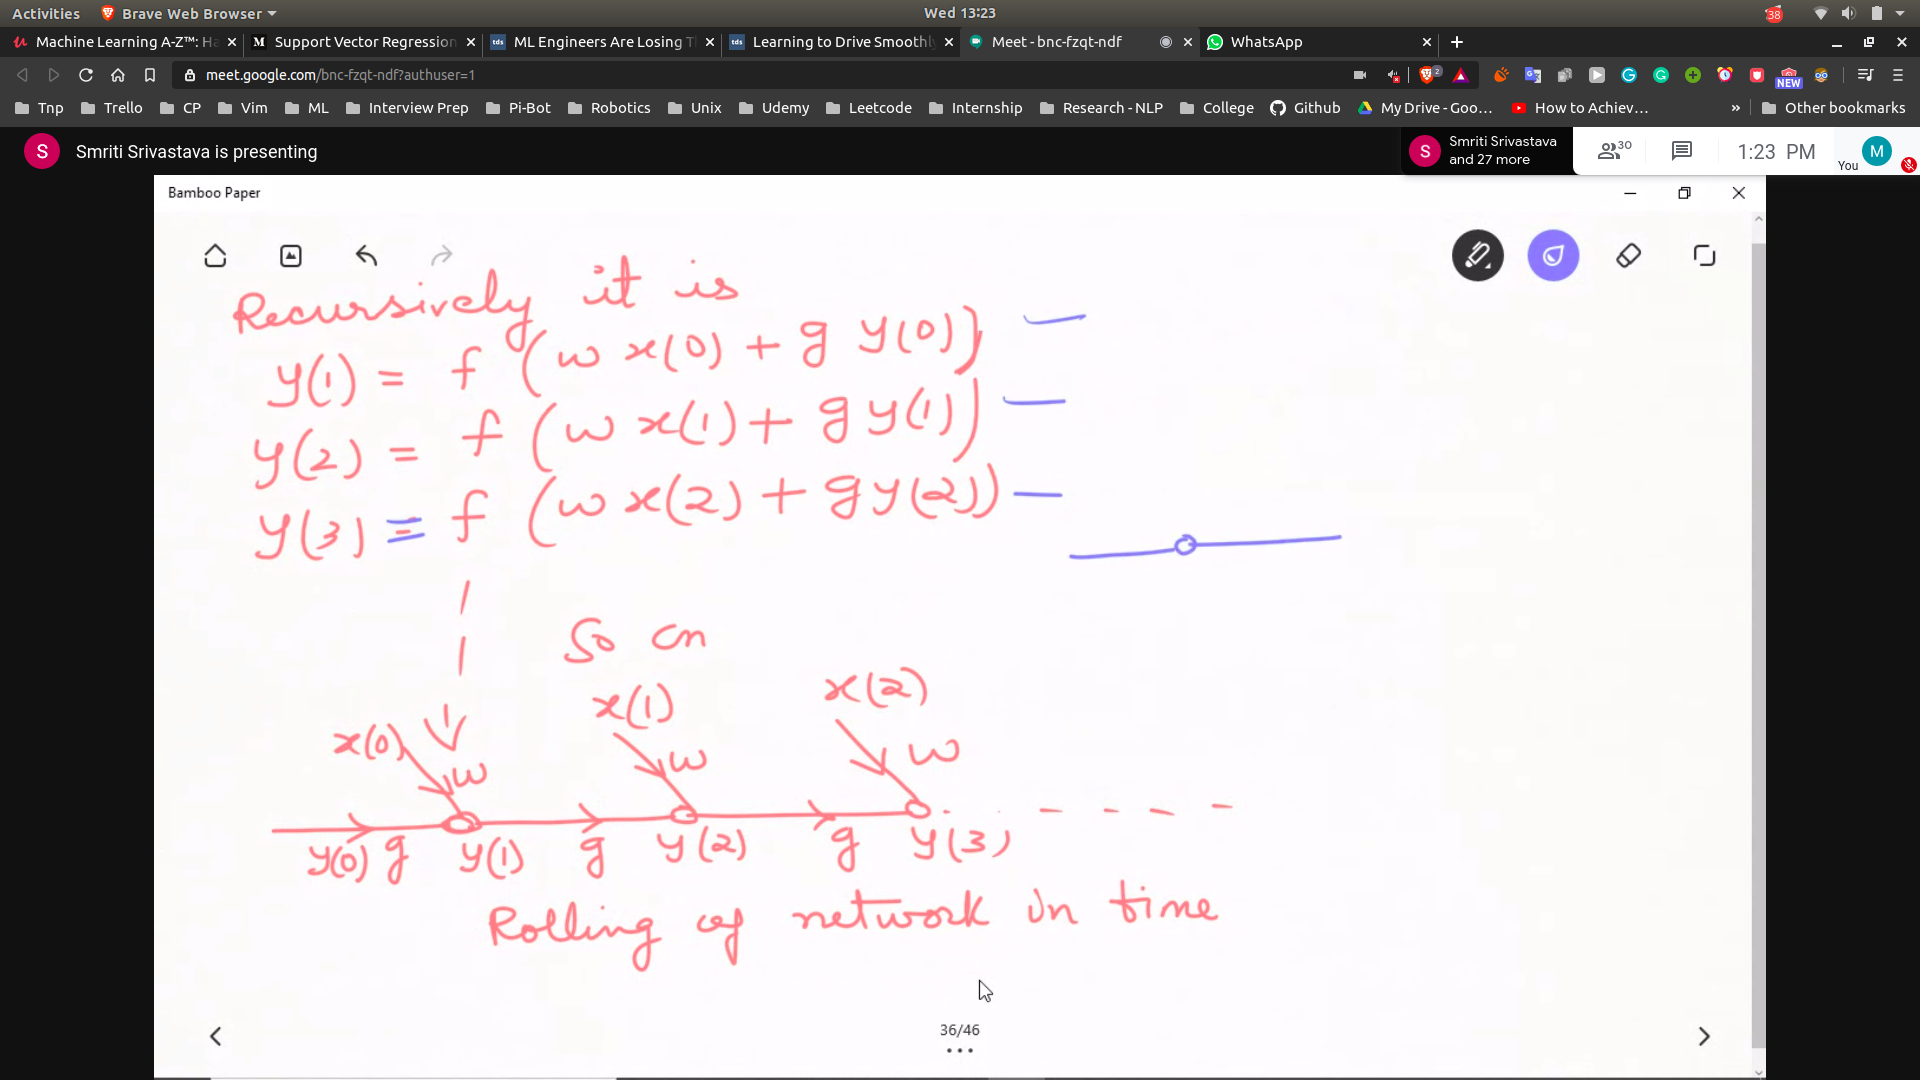 Activities Brave Web Browser Wed 13:23 38
Machine Learning A-Z™: Ha Support Vector Regression ML Engineers Are Losing T Learning to Drive Smoothly Meet - bnc-fzqt-ndf WhatsApp
meet.google.com/bnc-fzqt-ndf?authuser=1 2 NEW
Tnp Trello CP Vim ML Interview Prep Pi-Bot Robotics Unix Udemy Leetcode Internship Research - NLP College Github My Drive - Goo... How to Achiev... » Other bookmarks
S Smriti Srivastava is presenting S Smriti Srivastava and 27 more 30 1:23 PM You M
Bamboo Paper
Recursively it is
y(1) = f (w x(0) + g y(0))
y(2) = f (w x(1) + g y(1))
y(3) = f (w x(2) + g y(2))
So on
x(0) w x(1) w x(2) w
y(0) g y(1) g y(2) g y(3)
Rolling of network in time
36/46